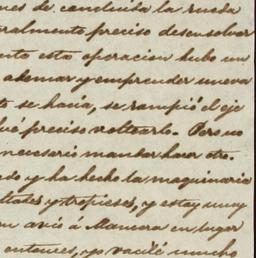 nes de concluida la rueda
uralmente preciso desenvolver
ento esta operacion hubo un
ademar y emprender nueva
se hacía, se rompió el eje
ué preciso voltearlo. Pero no
necesario mandar hacer otro.
ado y ha hecho la maquinaria
ltades y tropieses, y estoy muy
avió á Mamora en lugar
entonces, yo vacilé mucho